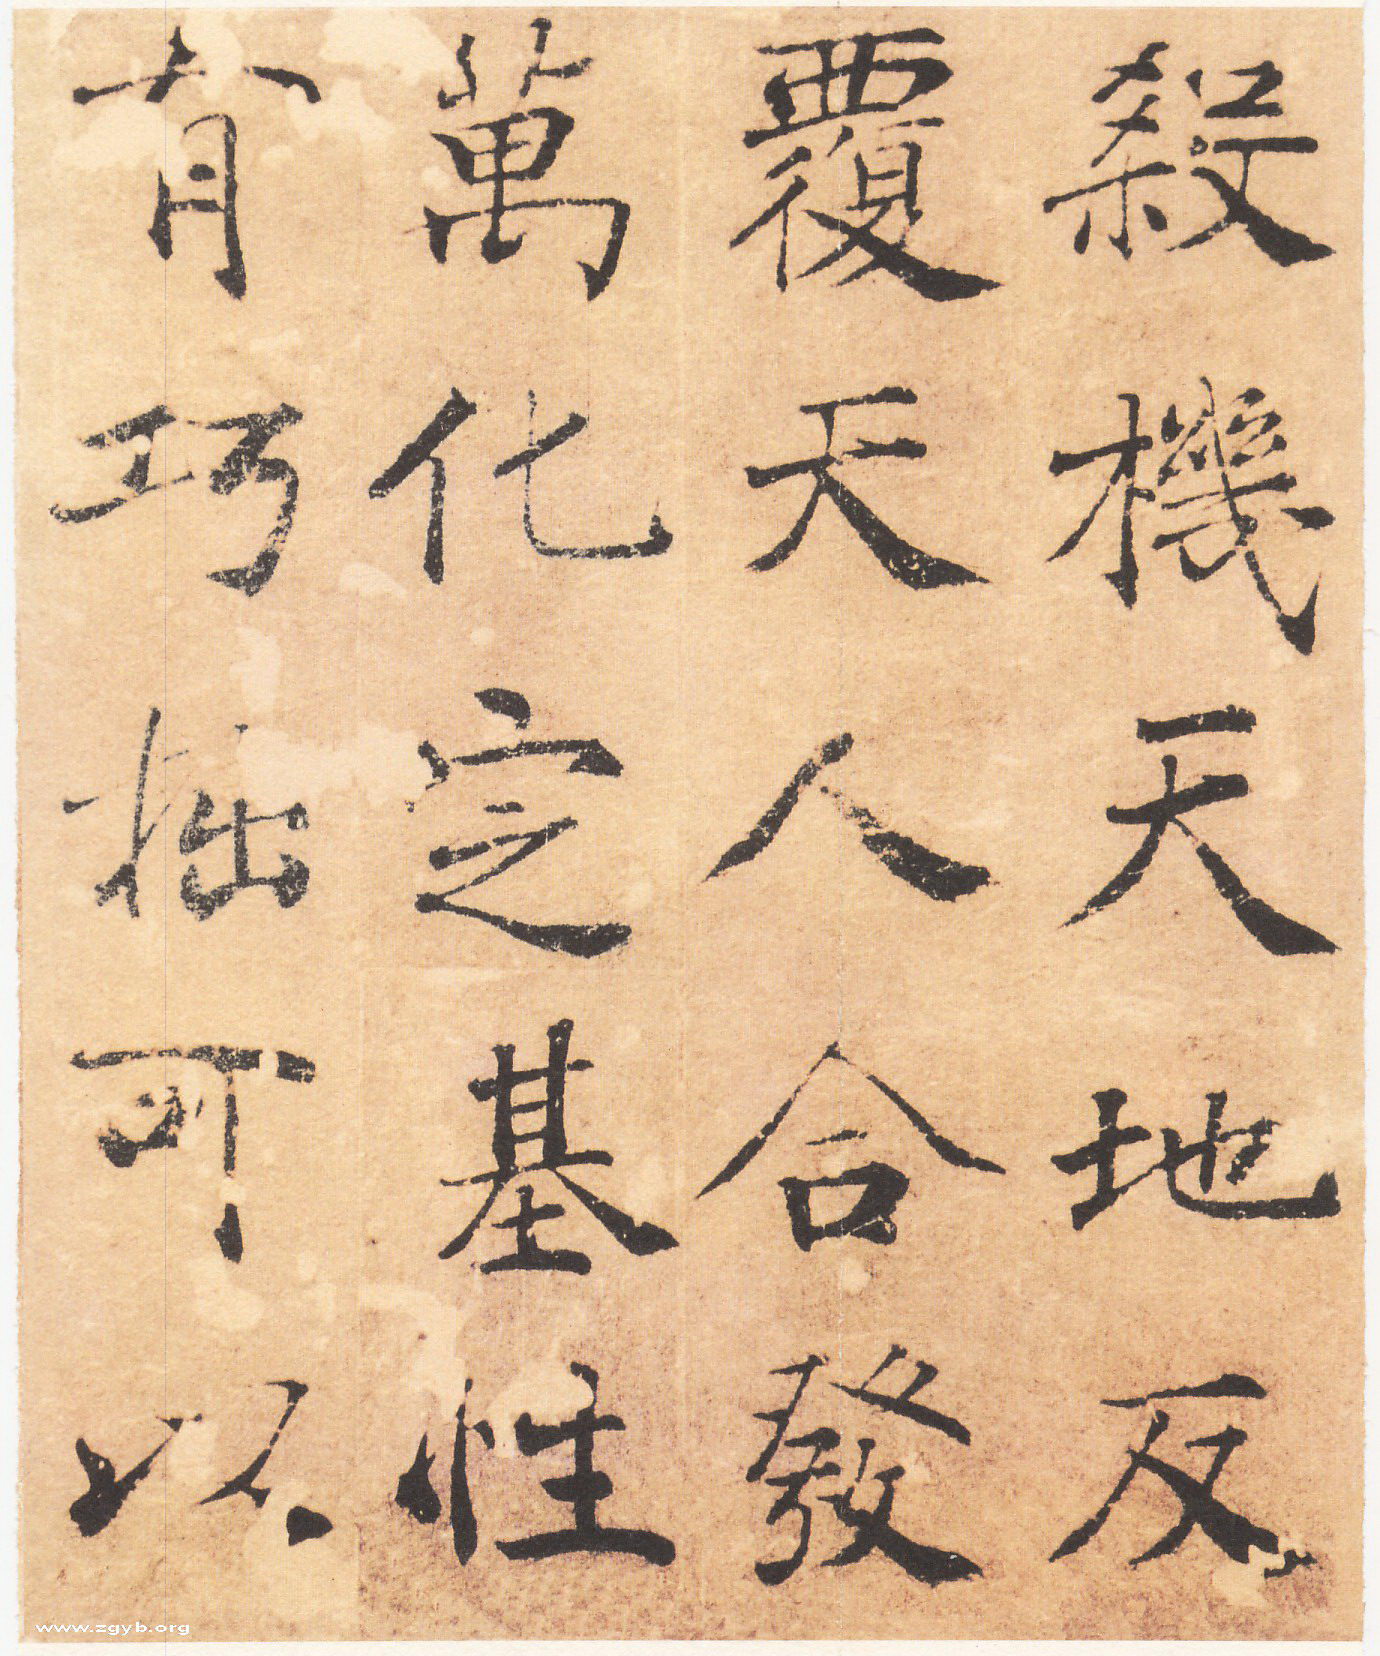 殺機天地反
覆天人合發
萬化定基性
有巧拙可以
www.zgyb.org